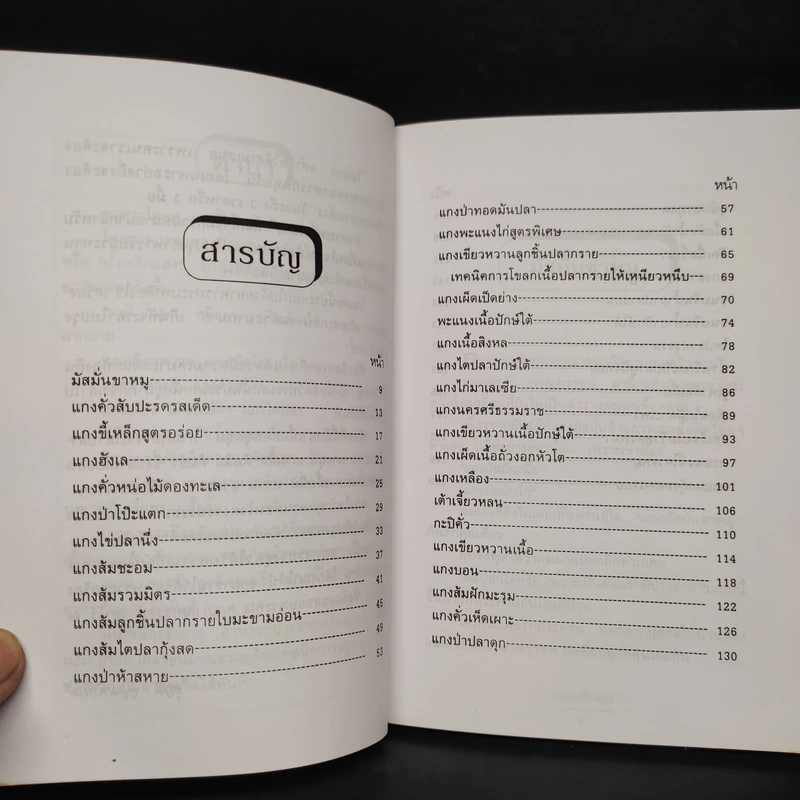 สารบัญ
หน้า
มัสมั่นขาหมู 9
แกงคั่วสับปะรดรสเด็ด 13
แกงขี้เหล็กสูตรอร่อย 17
แกงฮังเล 21
แกงคั่วหน่อไม้ดองทะเล 25
แกงป่าโป๊ะแตก 29
แกงไข่ปลานึ่ง 33
แกงส้มชะอม 37
แกงส้มรวมมิตร 41
แกงส้มลูกชิ้นปลากรายใบมะขามอ่อน 45
แกงส้มไตปลากุ้งสด 49
แกงป่าห้าสหาย 53
หน้า
แกงป่าทอดมันปลา 57
แกงพะแนงไก่สูตรพิเศษ 61
แกงเขียวหวานลูกชิ้นปลากราย 65
เทคนิคการโขลกเนื้อปลากรายให้เหนียวหนึบ 69
แกงเผ็ดเป็ดย่าง 70
พะแนงเนื้อปักษ์ใต้ 74
แกงเนื้อสิงหล 78
แกงไตปลาปักษ์ใต้ 82
แกงไก่มาเลเซีย 86
แกงนครศรีธรรมราช 89
แกงเขียวหวานเนื้อปักษ์ใต้ 93
แกงเผ็ดเนื้อถั่วงอกหัวโต 97
แกงเหลือง 101
เต้าเจี้ยวหลน 106
กะปิคั่ว 110
แกงเขียวหวานเนื้อ 114
แกงบอน 118
แกงส้มฝักมะรุม 122
แกงคั่วเห็ดเผาะ 126
แกงป่าปลาดุก 130